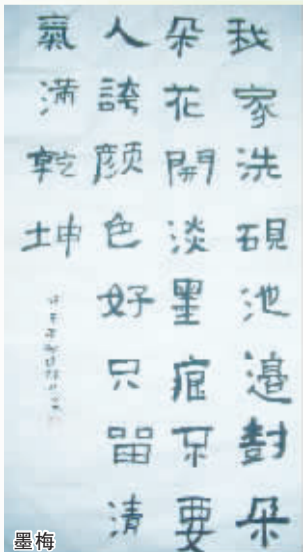 我家洗硯池邊對朵
朵花開淡墨痕不要
人誇顔色好只留清
氣滿乾坤
墨梅